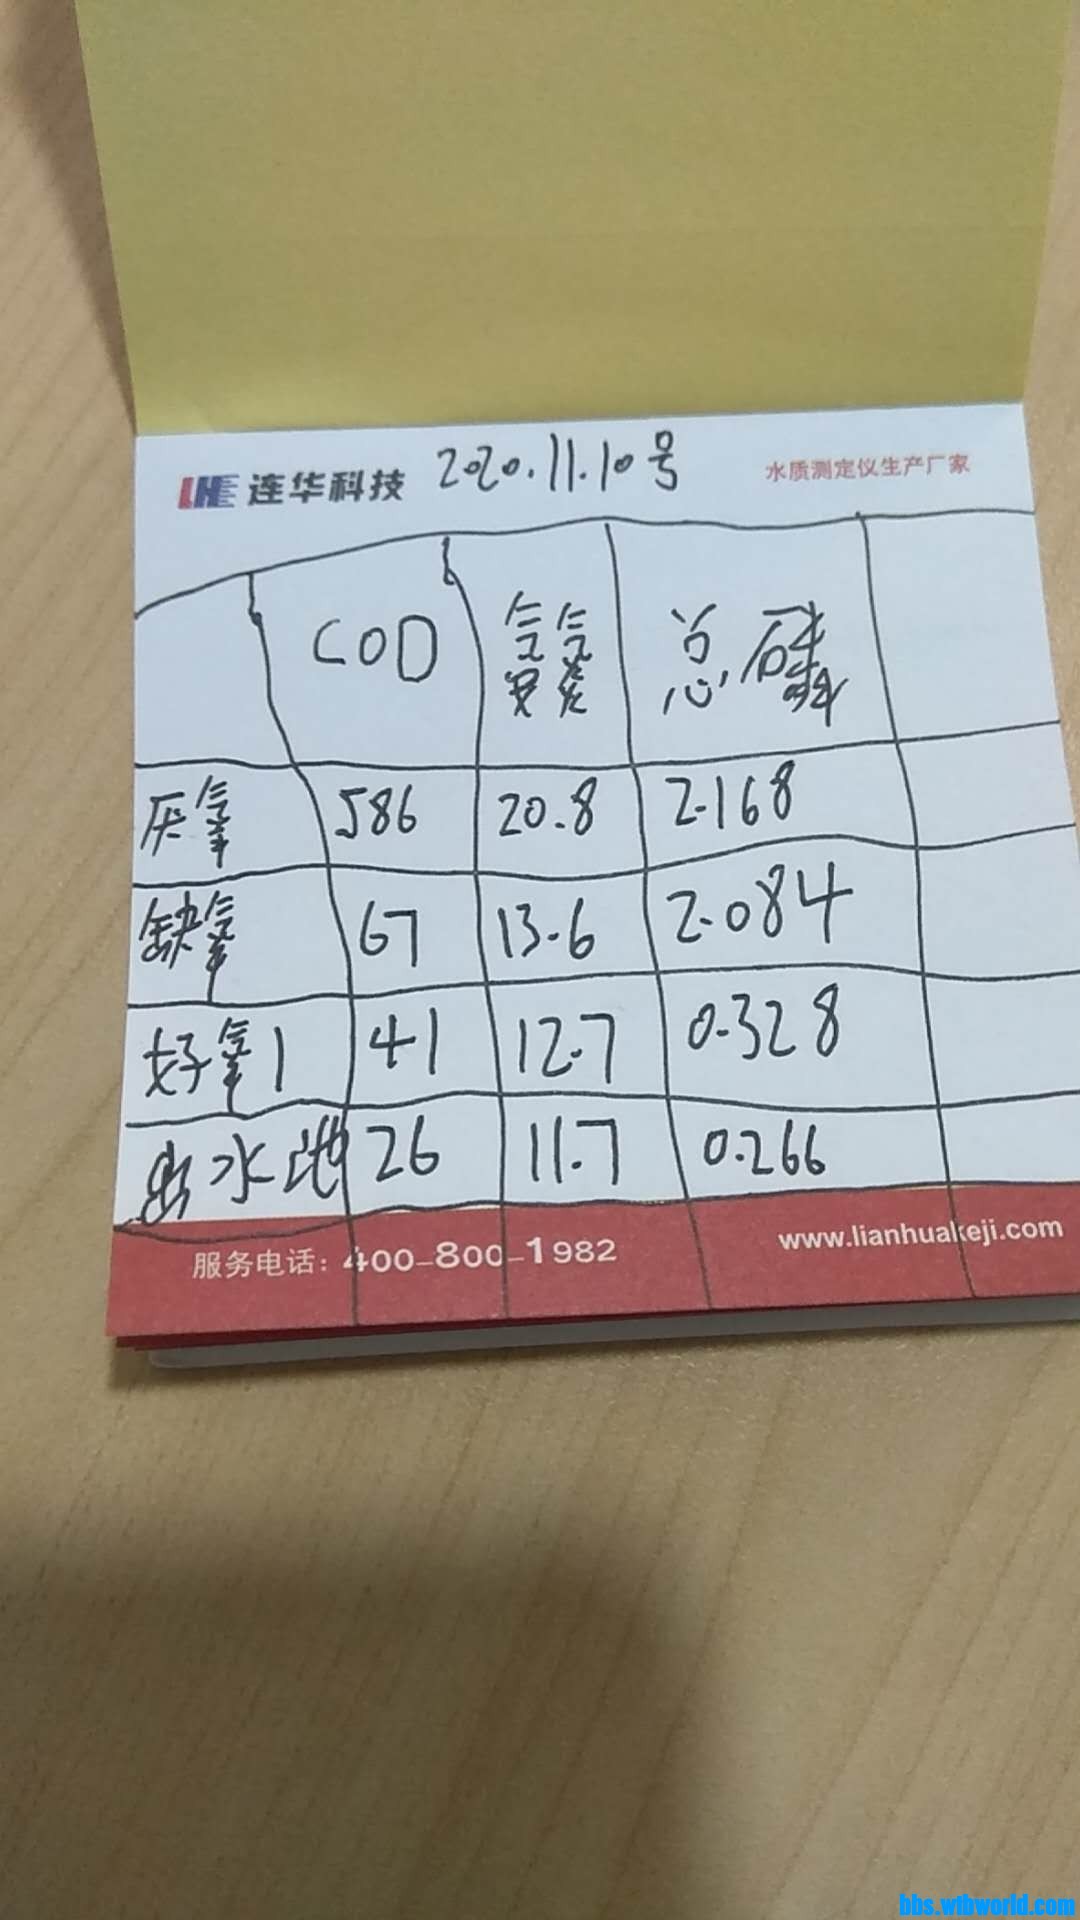 LH 连华科技 2020.11.10号 水质测定仪生产厂家
COD 氨氮 总磷
厌氧 586 20.8 2.168
缺氧 67 13.6 2.084
好氧1 41 12.7 0.328
出水池 26 11.7 0.266
服务电话：400-800-1982 www.lianhuakeji.com
bbs.wtbworld.com